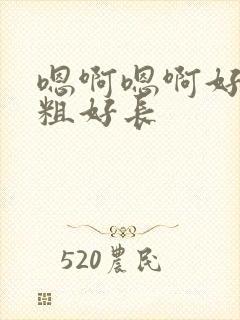 嗯啊嗯啊好
粗好长
520農民